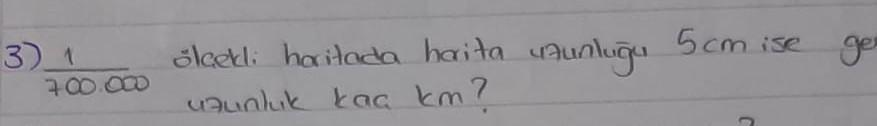 3) 1/700.000 ölçekli haritada harita uzunluğu 5cm ise ge
uzunluk kaç km?